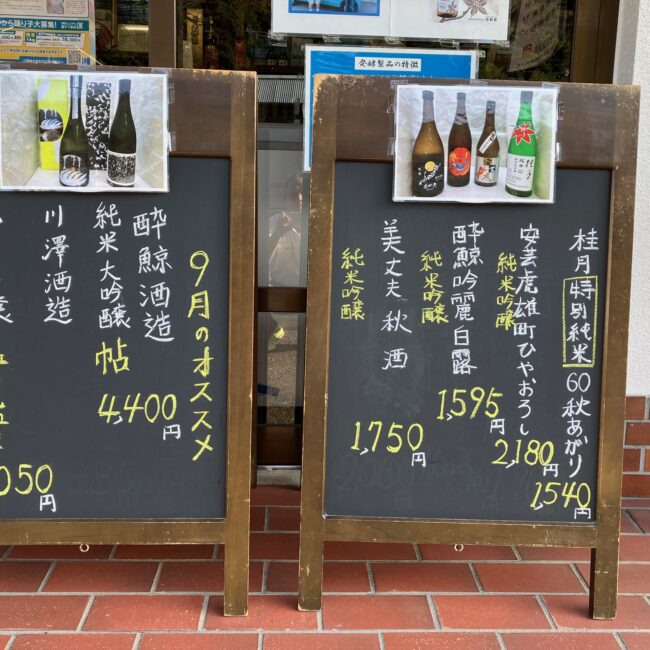 から踊り子大募集！
発酵製品の特徴
9月のオススメ
酔鯨酒造
純米大吟醸 帖
4,400円
川澤酒造
050円
桂月 特別純米 60 秋あがり
1,540円
安芸虎雄町ひやおろし
純米吟醸
2,180円
酔鯨吟麗白露
純米吟醸
1,595円
美丈夫秋酒
純米吟醸
1,750円